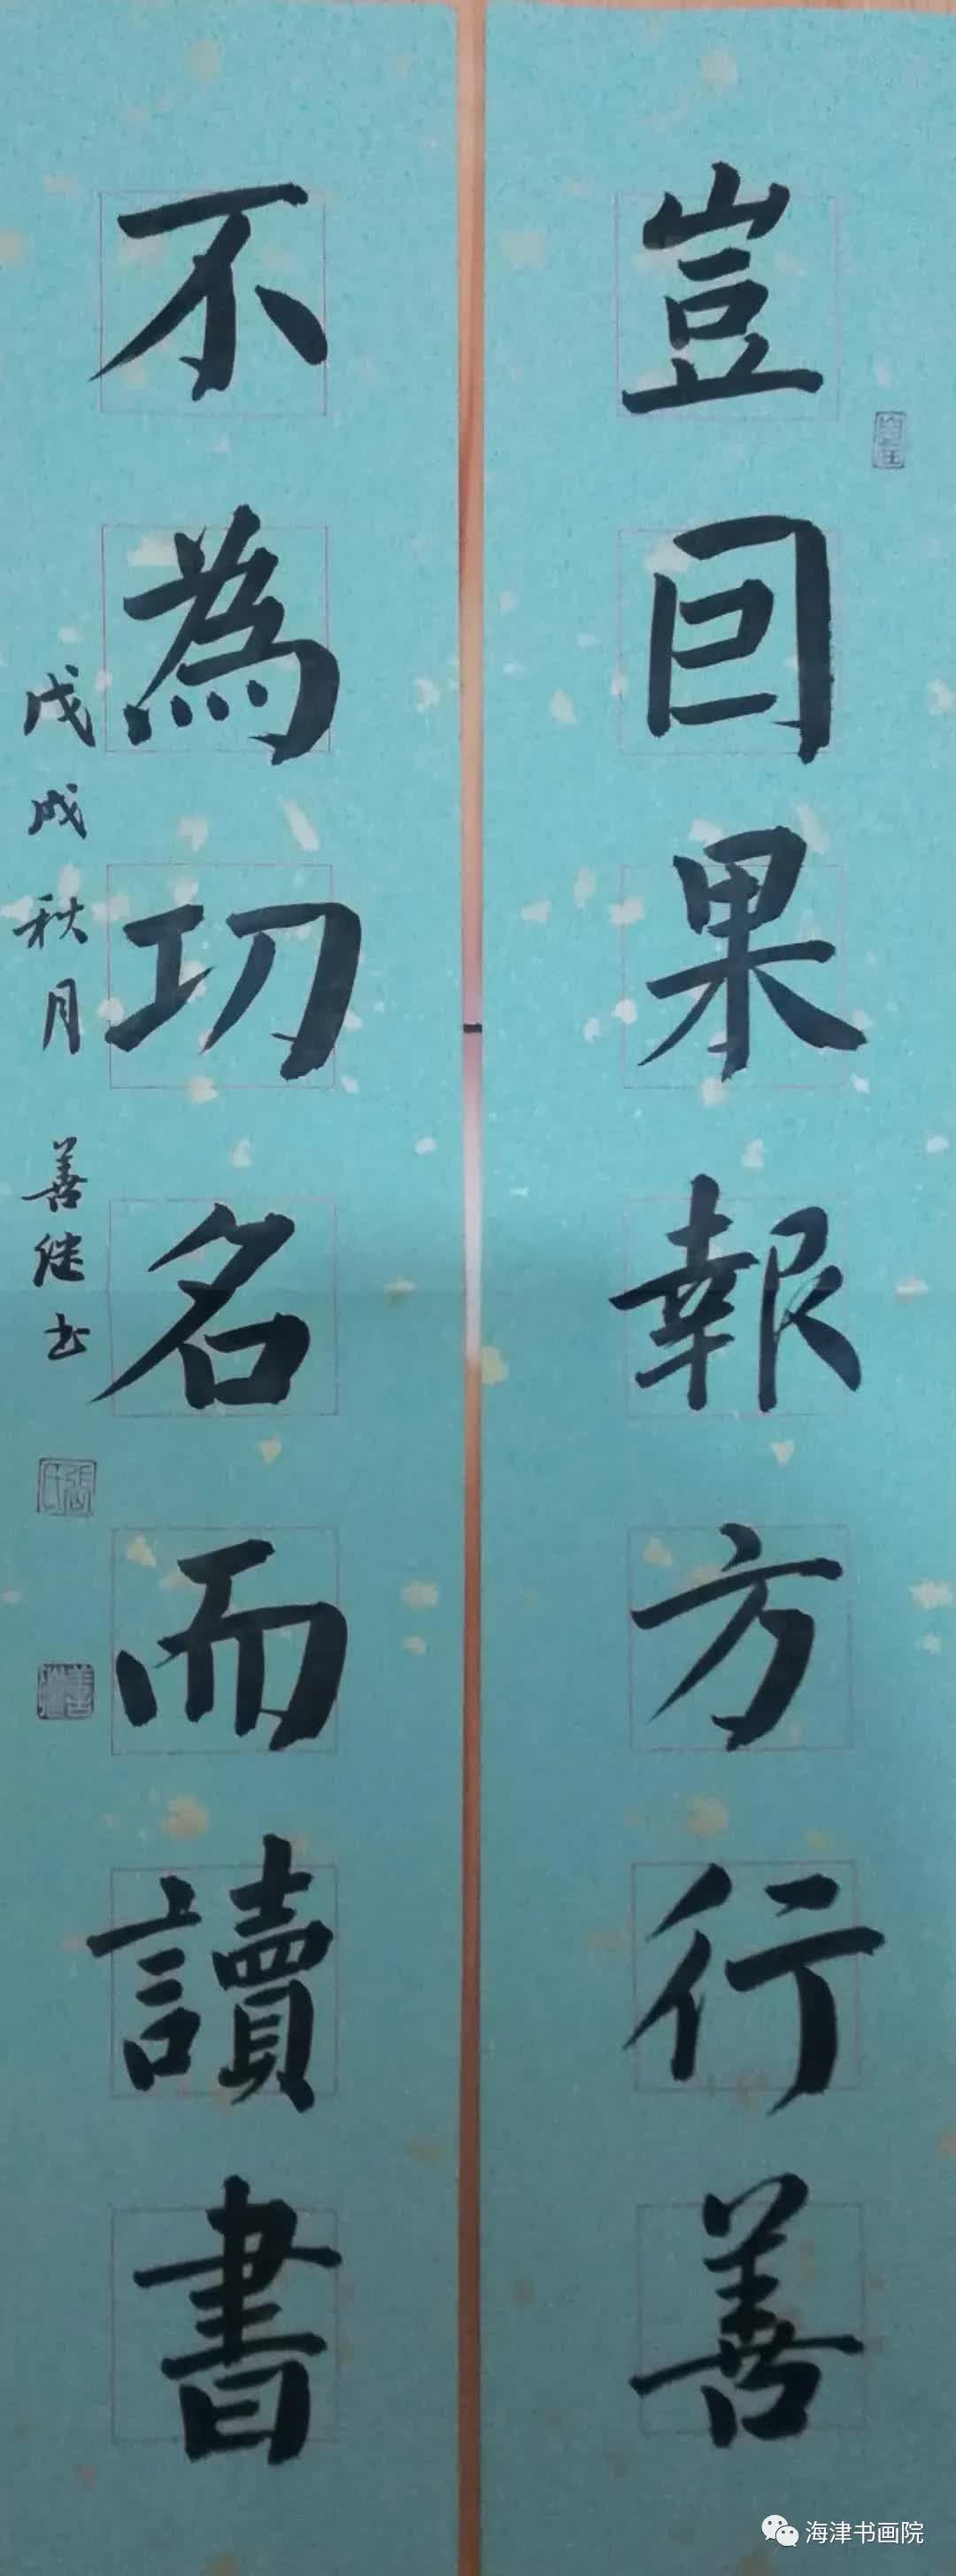 豈因果報方行善
不為功名而讀書
戊戌秋月 善继书
自在
張氏
善继
海津书画院